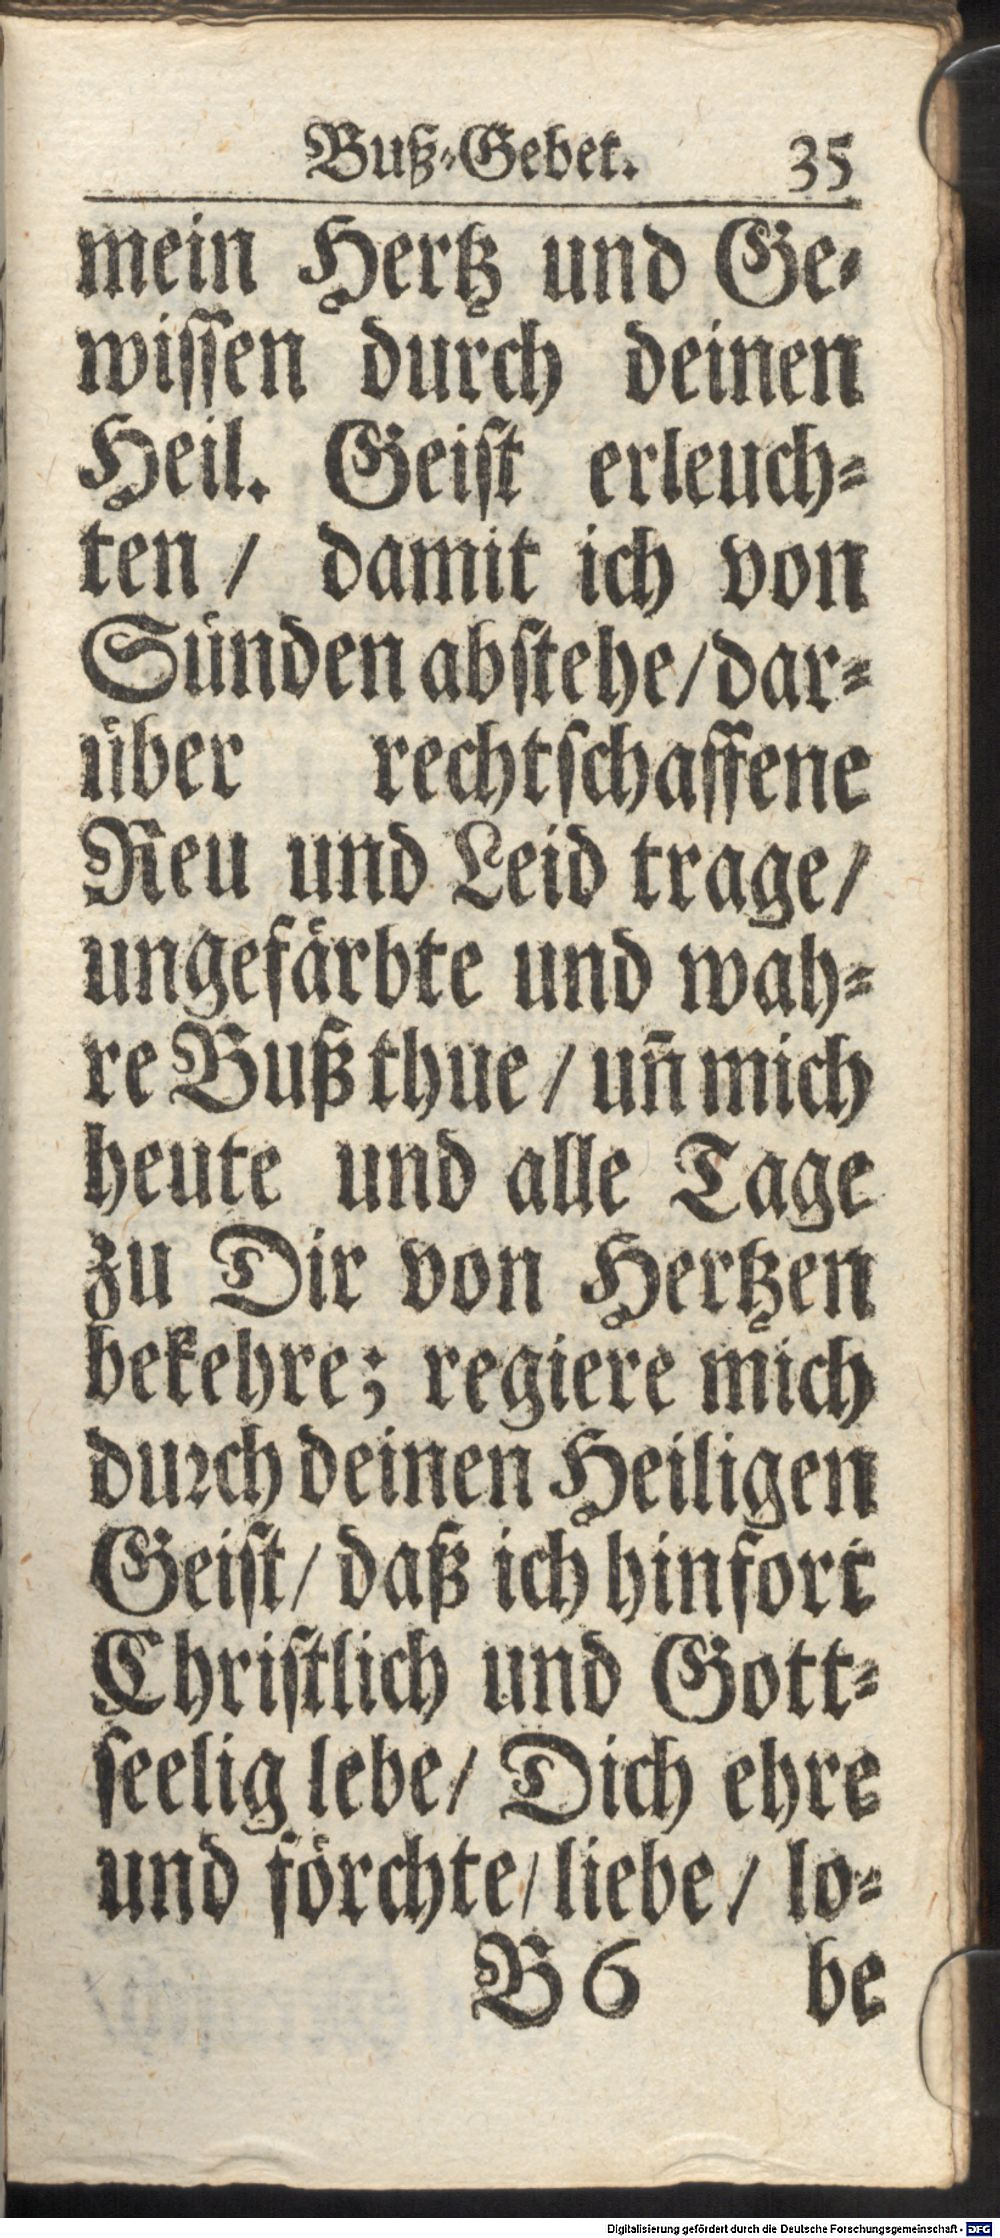 Buß-Gebet. 35
mein Hertz und Ge-
wissen durch deinen
Heil. Geist erleuch-
ten / damit ich von
Sünden abstehe / dar-
über rechtschaffene
Reu und Leid trage /
ungefärbte und wah-
re Buß thue / uñ mich
heute und alle Tage
zu Dir von Hertzen
bekehre; regiere mich
durch deinen Heiligen
Geist / daß ich hinfort
Christlich und Gott-
seelig lebe / Dich ehre
und förchte / liebe / lo-
B 6 be
Digitalisierung gefördert durch die Deutsche Forschungsgemeinschaft - DFG